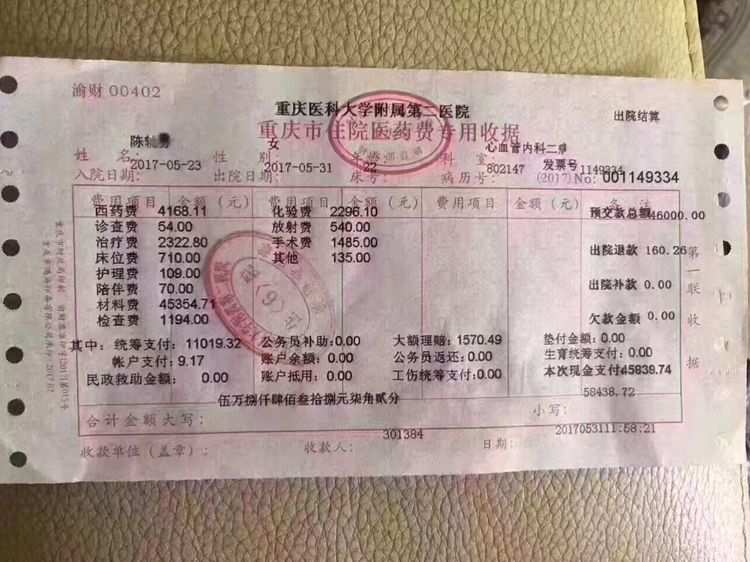 渝财 00402
重庆医科大学附属第二医院 出院结算
重庆市住院医药费专用收据
陈 女 心血管内科二单 发票号
姓 名: 性 别: 科 室: 1149334
2017-05-23 2017-05-31 22 802147
入院日期: 出院日期: 床号: 病历号: (2017) No: 001149334
费用项目 金额(元) 费用项目 金额(元) 费用项目 金额(元) 备 注
西药费 4168.11 化验费 2296.10 预交款总额 46000.00
诊查费 54.00 放射费 540.00
治疗费 2322.80 手术费 1485.00 出院退款 160.26
床位费 710.00 其他 135.00
护理费 109.00
陪伴费 70.00 出院补款 0.00
材料费 45354.71
检查费 1194.00 欠款金额 0.00
其中: 统筹支付: 11019.32 公务员补助:0.00 大额理赔: 1570.49 垫付金额:0.00
帐户支付: 9.17 账户余额: 0.00 公务员返还: 0.00 生育统筹支付: 0.00
民政救助金额: 0.00 账户抵用: 0.00 工伤统筹支付: 0.00 本次现金支付:45839.74
伍万捌仟肆佰叁拾捌元柒角贰分 58438.72
合计金额大写: 小写:
301384 2017053111:58:21
收款单位(盖章): 收款人: 日期:
第一联 收据